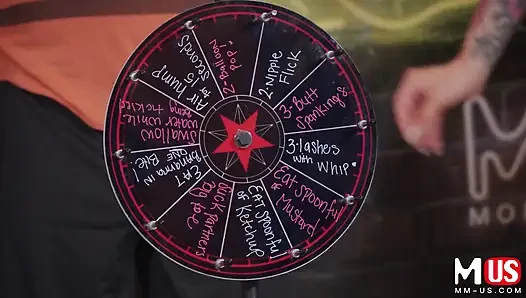 2 Nipple
Flick
3-Butt
Spankings
3-lashes
with Whip
Eat Spoonful
of Mustard
EAT Spoonful
of Ketchup
Suck Partners
big toe
EAT
Banana in
ONE Bite!
Swallow
water while
being tickled
Air hump
for 15
Seconds
2-Balloon
POP!
MO
M US
MM-US.COM